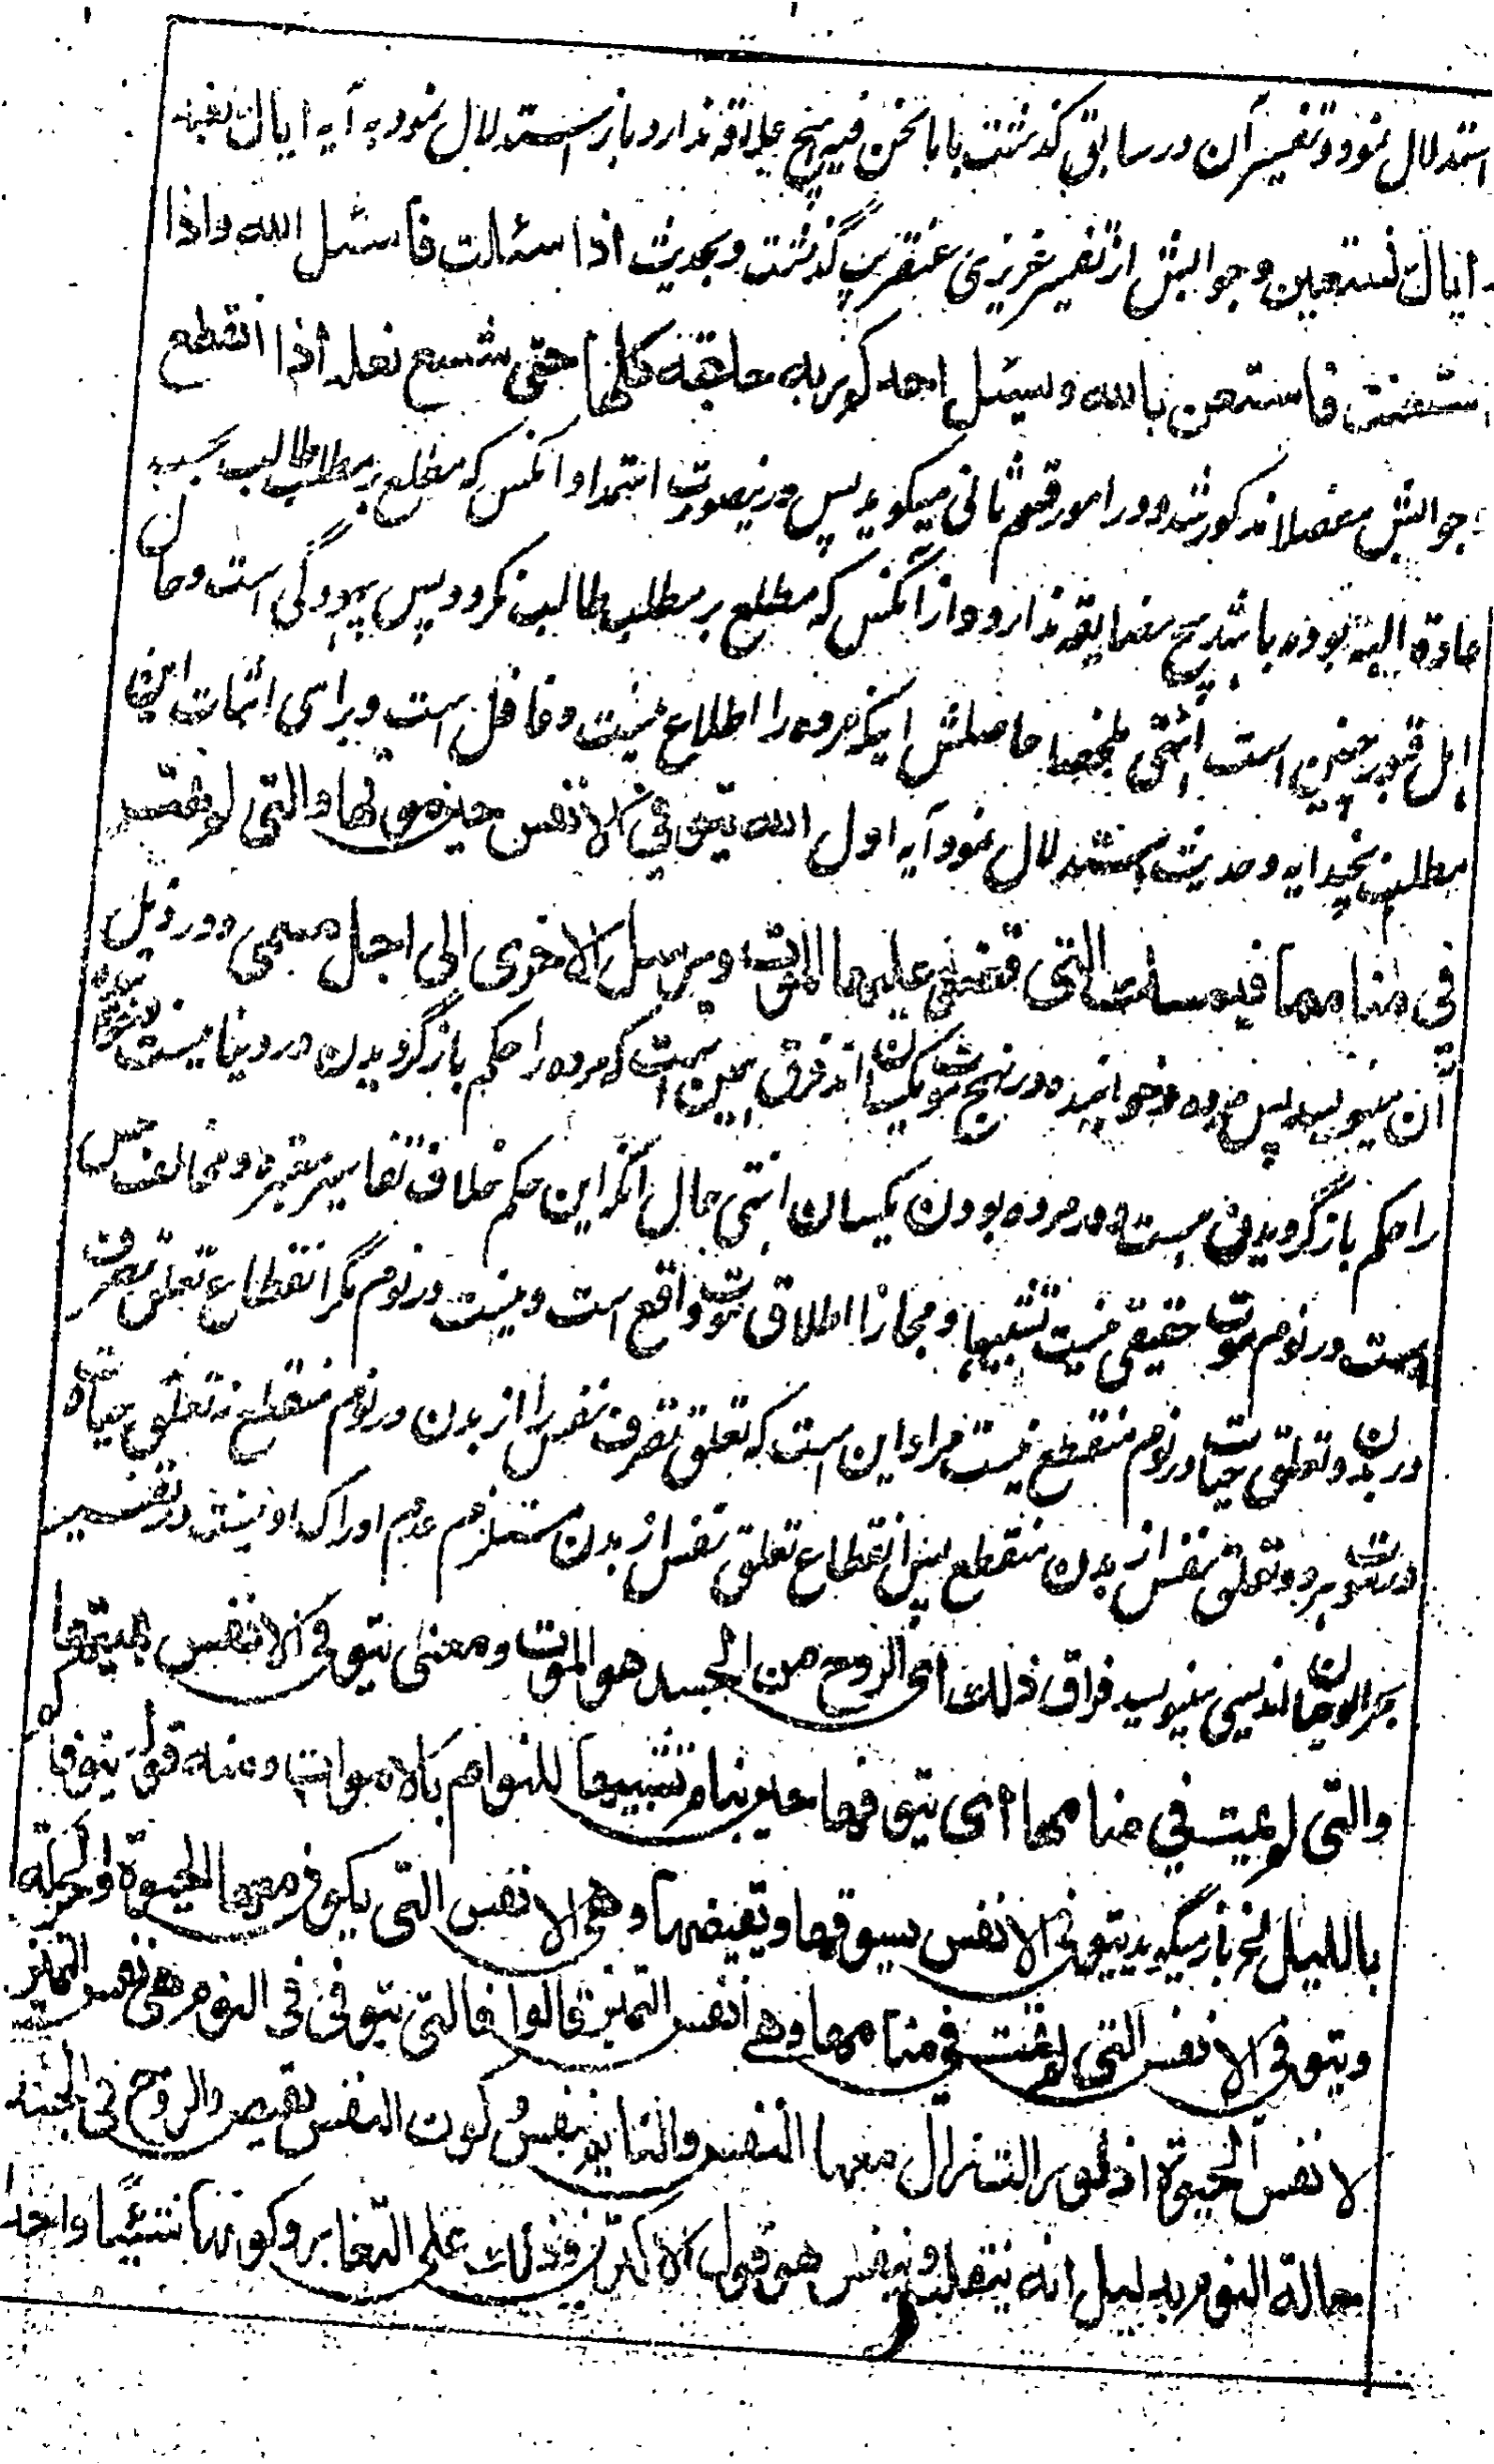 استدلال نمود و تفسیر آن در سابق گذشت باما نحن فیه هیچ علاقه ندارد و باز استدلال نمود به آیه ایاك نعبد
و ایاك نستعین و جوابش از تفسیر عزیزی عنقریب گذشت و بحدیث اذا سئالت فاسئل الله و اذا
استعنت فاستعن بالله و لیسئل احدکم ربه حاجته کلها حتی شسع نعله اذا انقطع
و جوابش مفصلا مذکور شد و در امور قسم ثانی میگوید پس درینصورت استمداد از انکس که مطلع بر مطلب طالب بحسب
عادة الهیه بوده باشد هیچ مضایقه ندارد و از آنکس که مطلع بر مطلب طالب نگردد پس بیهودگی است و حال
اهل قبور چنین است انتهی ملخصا حاصلش اینکه مرده را اطلاع نیست و غافل است و برای اثبات این
مطلب بچند ایه و حدیث استدلال نمود آیه اول الله یتوفی الانفس حین موتها والتی لم تمت
فی منامها فیمسك التی قضی علیها الموت ویرسل الاخری الی اجل مسمی و در ذیل
آن مینویسد پس مرده و خوابیده در رنج شریک اند فرق همین است که مرده را حکم باز گردیدن در دنیا نیست
را حکم باز گردیدن هست در مرده بودن یکسان انتهی حال آنکه این حکم خلاف تفاسیر معتبره و مخالف حس
است در نوم موت حقیقی نیست تشبیها و مجازا اطلاق موت واقع است و نیست در نوم مگر انقطاع تعلق تصرف
در بدن و تعلق حیات در نوم منقطع نیست مراد این است که تعلق تصرف نفس را از بدن در نوم منقطع نه تعلق حیات
در موت هر دو تعلق نفس از بدن منقطع پس انقطاع تعلق نفس از بدن مستلزم عدم ادراک او نیست در تفسیر
بحر ابو حیان اندلسی مینویسد فراق ذلك ای الروح من الجسد هو الموت ومعنی یتوفی الانفس یمیتها
والتی لم تمت فی منامها ای یتوفها حین تنام تشبیها للنوام بالاموات ومنه قوله یتوفاکم
باللیل الخ باز میگوید یتوفی الانفس یسوقها ویقبضها وهی الانفس التی یکون معها الحیوة والحرکة
ویتوفی الانفس التی لم تمت فی منامها وهی انفس التمیز قالوا فالتی یتوفی فی النوم هی نفس التمیز
لا نفس الحیوة اذ لو زالت زال معها النفس والنایم یتنفس و کون النفس یقبض والروح فی الجسد
حالة النوم بدلیل انه یتقلب ویتنفس هو قول الاکثرین وذلك علی التغایر وکونها شیئا واحدا